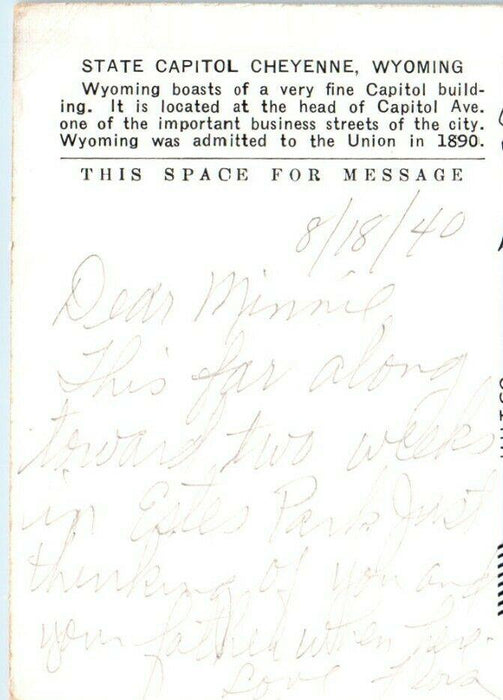 STATE CAPITOL CHEYENNE, WYOMING
Wyoming boasts of a very fine Capitol build-
ing. It is located at the head of Capitol Ave.
one of the important business streets of the city.
Wyoming was admitted to the Union in 1890.
THIS SPACE FOR MESSAGE
8/18/40
Dear Minnie
This far along
toward two weeks
in Estes Park Just
thinking of you and
your father when
Love Flora